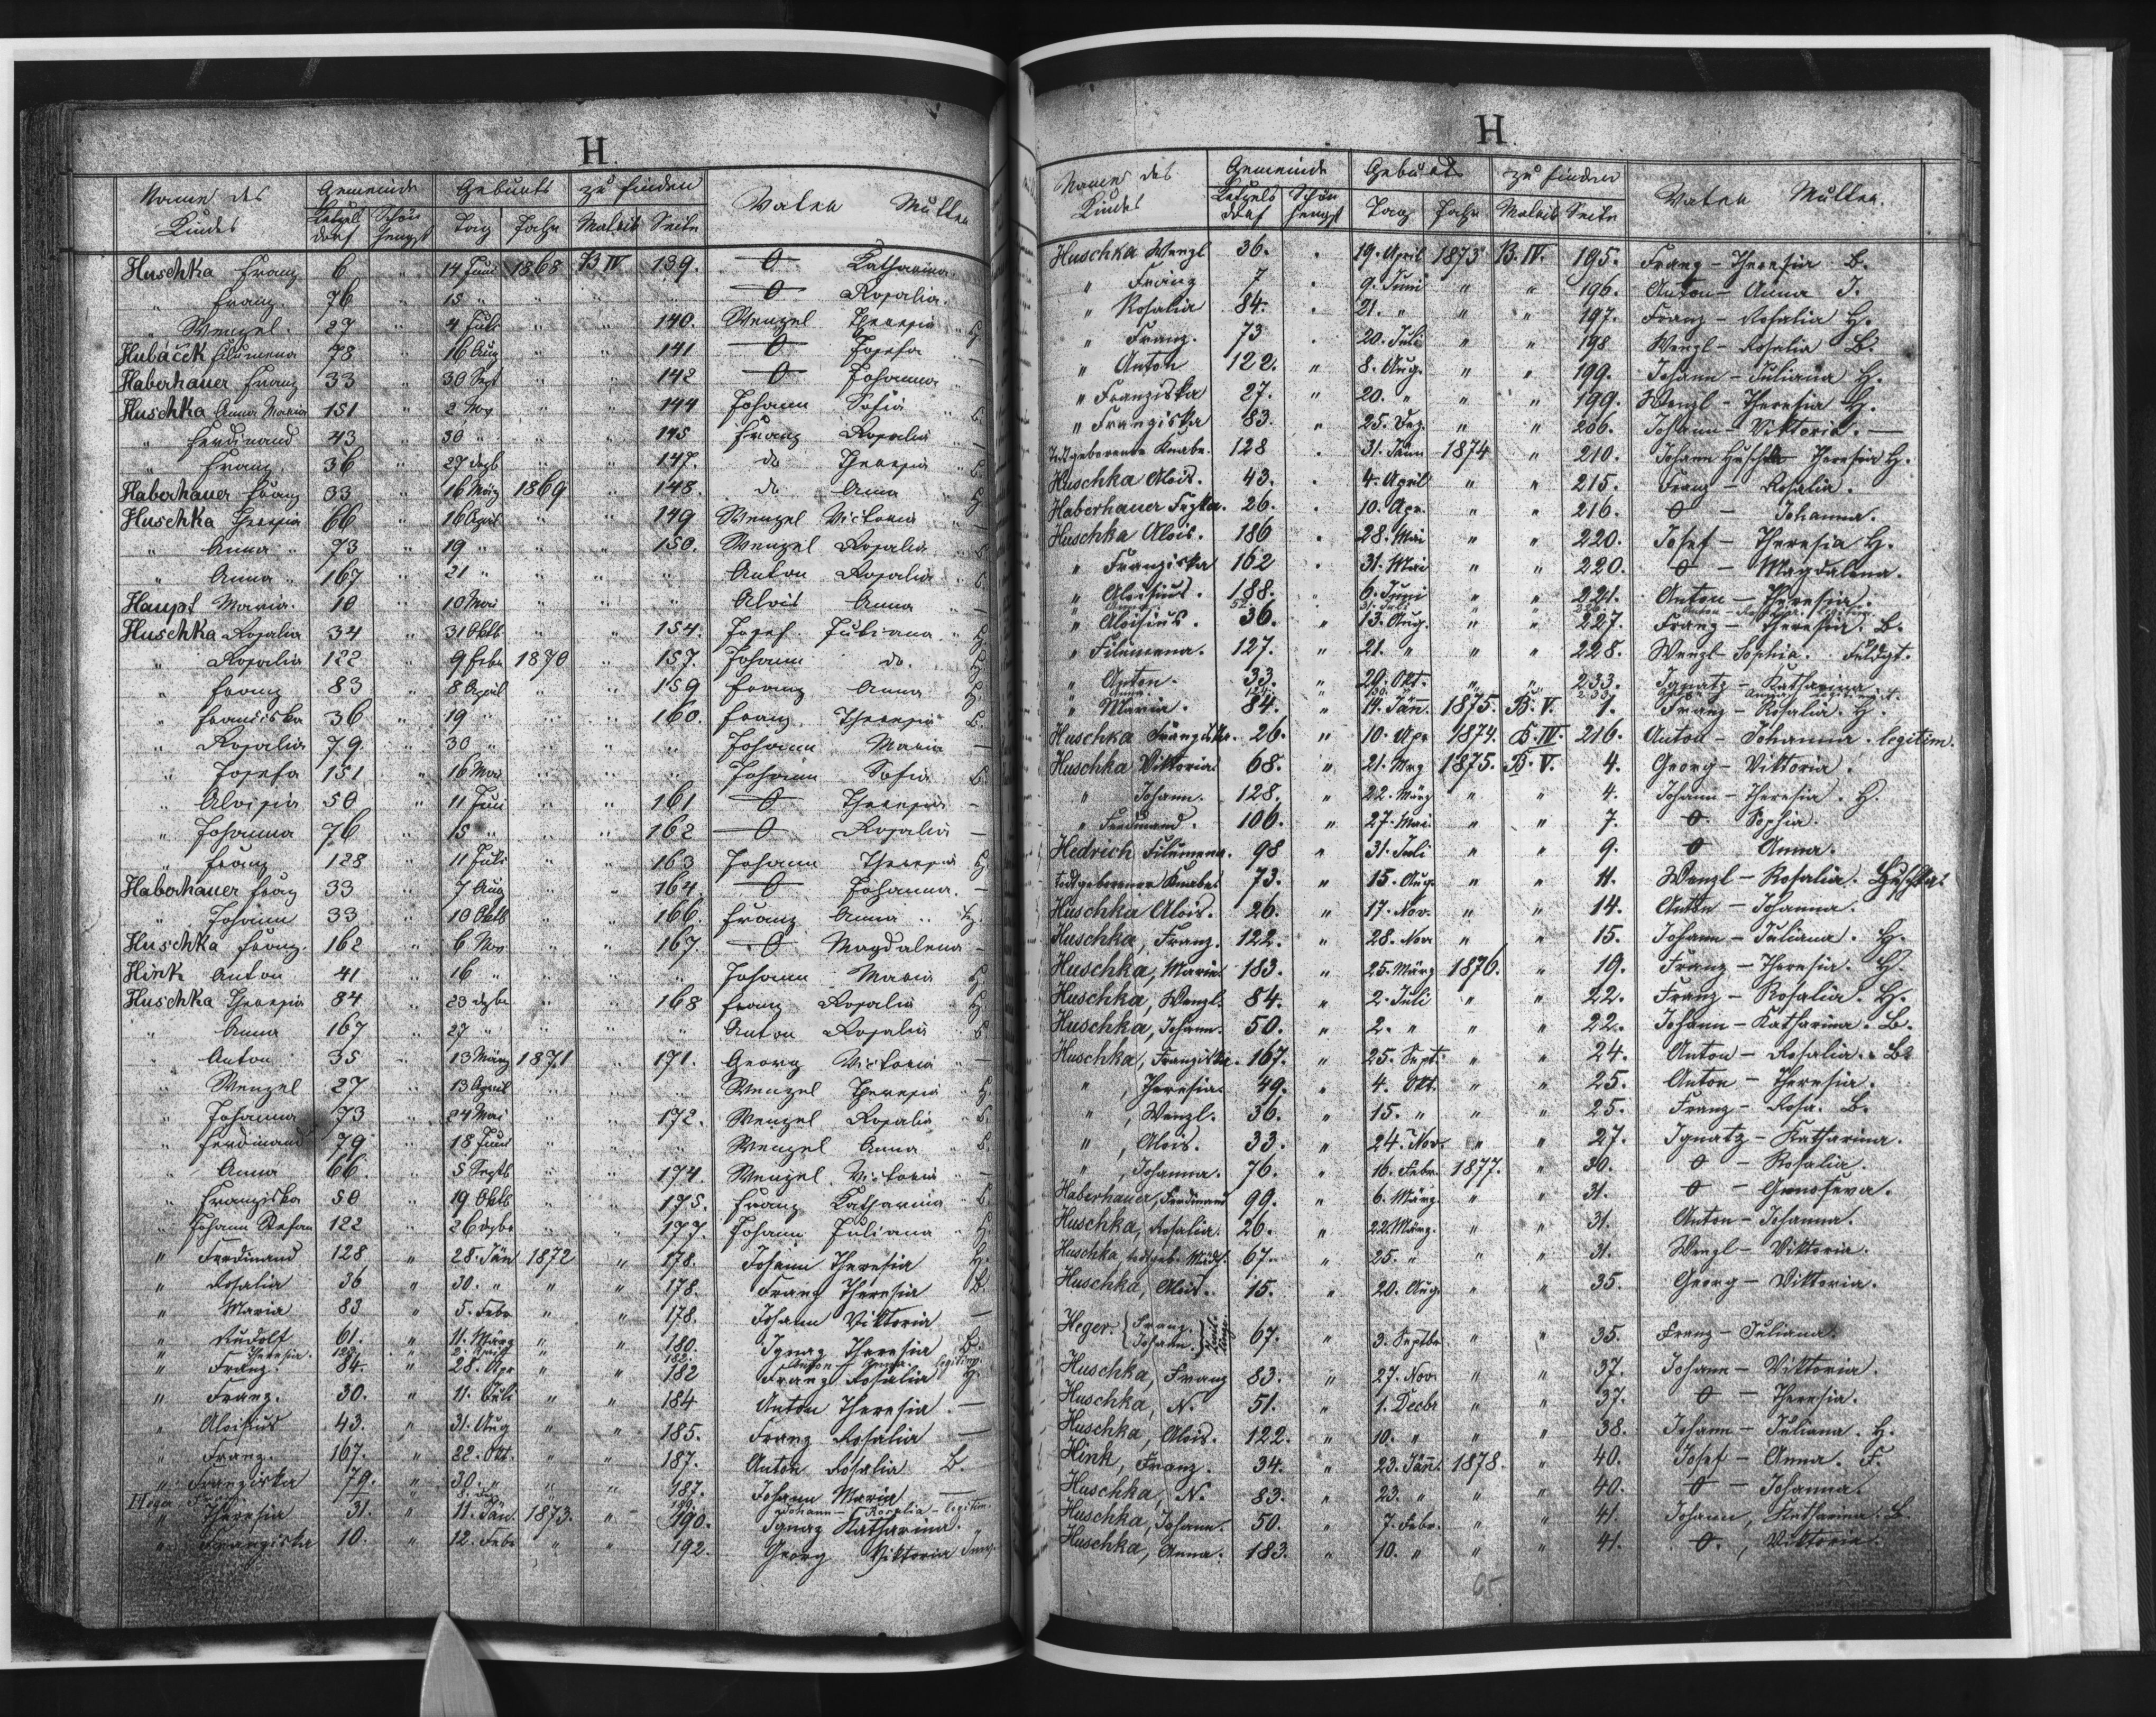 H.
Name des Kindes Gemeinde Geburts zu finden Vater Mutter
Ketzelsdorf Schönhengst Tag Jahr Matrik Seite
Huschka Franz 6 " 14 Juni 1868 B IV 139. O Katharina
" Franz. 76 " 15 " " " " O Rosalia.
" Wenzel. 27 " 4 Juli " " 140. Wenzel Theresia " H
Hubáček Filumena 78 " 16 Aug " " 141 O Josefa
Haberhauer Franz 33 " 30 Sept " " 142 O Johanna
Huschka Anna Maria 151 " 2 Nov " " 144 Johann Sofia " B.
" Ferdinand 43 " 30 " " " 145 Franz Rosalia " —
" Franz. 36 " 27 Dezb " " 147. do Theresia " B.
Haberhauer Franz 33 " 16 März 1869 " 148. do Anna " H
Huschka Theresia 66 " 16 April " " 149 Wenzel Victoria " —
" Anna " 73 " 19 " " " 150. Wenzel Rosalia " B
" Anna " 167 " 21 " " " " Anton Rosalia " B
Haupt Maria. 10 " 10 Mai " " " Alois Anna " —
Huschka Rosalia 34 " 31 Oktb " " 154. Josef. Juliana. " H
" Rosalia 122 " 9 Febr 1870 " 157. Johann do. H
" Franz 83 " 8 April " " 159 Franz Anna H
" Franciska 36 " 19 " " " 160. Franz. Theresia B.
" Rosalia 79. " 30 " " " " Johann Maria —
" Josefa 151 " 16 Mai " " " Johann Sofia B.
" Aloisia 50 " 11 Juni " " 161 O Theresia —
" Johanna 76 " 15 " " " 162 O Rosalia —
" Franz 128 " 11 Juli " " 163 Johann Theresia H
Haberhauer Franz 33 " 7 Aug " " 164. O Johanna. —
" Johann 33 " 10 Oktb " " 166. Franz Anna " H.
Huschka Franz. 162 " 6 Nov " " 167. O Magdalena —
Hink Anton 41 " 16 " " " " Johann Maria H
Huschka Theresia 84 " 23 Dezbr " " 168 Franz Rosalia H
" Anna 167 " 27 " " " " Anton Rosalia B
" Anton 35 " 13 März 1871 " 171. Georg Victoria " —
" Wenzel 27 " 13 April " " " Wenzel Theresia " H
" Johanna 73 " 24 Mai " " 172. Wenzel Rosalia " B.
" Ferdinand 79 " 18 Juni " " " Wenzel Anna " B.
" Anna 66. " 5 Septb " " 174. Wenzel. Victoria " —
" Franziska 50 " 19 Oktb " " 175. Franz Catharina B.
" Johann Stefan 122 " 26 Dezbr " " 177. Johann Juliana " H
" Ferdinand 128 " 28. Jän 1872 " 178. Johann Theresia H.
" Rosalia 36 " 30. " " " 178. Franz Theresia B.
" Maria 83 " 5. Febr " " 178. Johann Viktoria —
" Rudolf 61. " 11. März " " 180. Ignaz Theresia B.
" Theresia. 182. Anton — Anna. legitim.
" Franz. 84. " 28. Apr " " 182 Franz Rosalia H.
" Franz. 30. " 11. Juli " " 184 Anton Theresia. —
" Aloisius 43. " 31. Aug " " 185. Franz Rosalia —
" Franz. 167. " 22. Okt. " " 187. Anton Rosalia B.
" Franziska 79. " 30. " " " 187. Johann Maria —
Heger 189. Johann — Rosalia — legitim.
" Theresia 31. " 11. Jän. 1873. " 190. Ignaz Katharina.
" Franziska 10. " 12. Febr " " 192. Georg Viktoria
H
Name des Kindes Gemeinde Geburts zu finden Vater Mutter.
Ketzelsdorf Schönhengst Tag Jahr Matrik Seite
Huschka Wenzl 36. " 19. April 1873 B. IV. 195. Franz — Theresia B.
" Franz 7 " 9. Juni " " 196. Anton — Anna J.
" Rosalia 84. " 21. " " " 197. Franz — Rosalia H.
" Franz. 73 " 20. Juli " " 198 Wenzl — Rosalia B.
" Anton 122. " 8. Aug. " " 199. Johann — Juliana H.
" Franziska 27. " 20. " " " 199. Wenzl — Theresia H.
" Franziska 83. " 25. Dez. " " 206. Johann — Viktoria. —
Todtgeborener Knabe. 128 " 31. Jänn 1874 " 210. Johann Huschka Theresia H.
Huschka Alois. 43. " 4. April " " 215. Franz — Rosalia.
Haberhauer 26. " 10. Apr. " " 216. O — Johanna.
Huschka Alois. 186 " 28. Mai " " 220. Josef — Theresia H.
" Franziska 162 " 31. Mai " " 220. O — Magdalena.
" Aloisius. 188. " 6. Juni " " 221. Anton — Theresia.
" Anna. 52. 31. Juli 226. Anton — legitim.
" Aloisius. 36. " 13. Aug. " " 227. Franz — Theresia. B.
" Filumena. 127. " 21. " " " 228. Wenzl — Sophia.
" Anton. 33. " 20. Okt. " " 233. Ignatz — Katharina
" Anna. 233. Anna legitimirt.
" Maria. 84. " 14. Jän. 1875. B. V. 1. Franz — Rosalia. H.
Huschka Franziska. 26. " 10. Apr 1874. B. IV. 216. Anton — Johanna. legitim.
Huschka Viktoria 68. " 21. Mrz 1875. B. V. 4. Georg — Viktoria.
" Johann. 128. " 22. März " " 4. Johann — Theresia. H.
" Ferdinand. 106. " 27. Mai. " " 7. O. Sophia.
Hedrich Filumena. 98 " 31. Juli " " 9. O Anna.
todtgeborener Knabe 73. " 15. Aug. " " 11. Wenzl — Rosalia. Huschka
Huschka Alois. 26. " 17. Nov. " " 14. Anton — Johanna.
Huschka, Franz. 122. " 28. Nov " " 15. Johann — Juliana. H.
Huschka, Maria 183. " 25. März 1876. " 19. Franz — Theresia. H.
Huschka, Wenzl. 84. " 2. Juli " " 22. Franz — Rosalia. H.
Huschka, Johann. 50. " 2. " " " 22. Johann — Katharina. B.
Huschka, Franziska. 167. " 25. Sept. " " 24. Anton — Rosalia. B.
" , Theresia. 49. " 4. Okt. " " 25. Anton — Theresia.
" , Wenzl. 36. " 15. " " " 25. Franz — Rosa. B.
" , Alois. 33. " 24. Nov. " " 27. Ignatz — Katharina.
" , Johanna. 76. " 16. Febr. 1877. " 30. O — Rosalia.
Haberhauer, Ferdinand 99. " 6. März. " " 31. O — Genofeva.
Huschka, Rosalia. 26. " 22. März. " " 31. Anton — Johanna.
Huschka, todtgeb. Mädch. 67. " 25. " " " 31. Wenzl — Viktoria.
Huschka, Alois. 15. " 20. Aug. " " 35. Georg — Viktoria.
Heger. { Franz. Johann. } 67. " 3. Septbr. " " 35. Franz — Juliana.
Huschka, Franz 83. " 27. Nov. " " 37. Johann — Viktoria.
Huschka, N. 51. " 1. Decbr " " 37. O — Theresia.
Huschka, Alois. 122. " 10. " " " 38. Johann — Juliana. H.
Hink, Franz. 34. " 23. Jän. 1878. " 40. Josef — Anna. F.
Huschka, N. 83. " 23. " " " 40. O — Johanna.
Huschka, Johann. 50. " 7. Febr. " " 41. Johann, Katharina. B.
Huschka, Anna. 183. " 10. " " " 41. O. , Viktoria.
65.